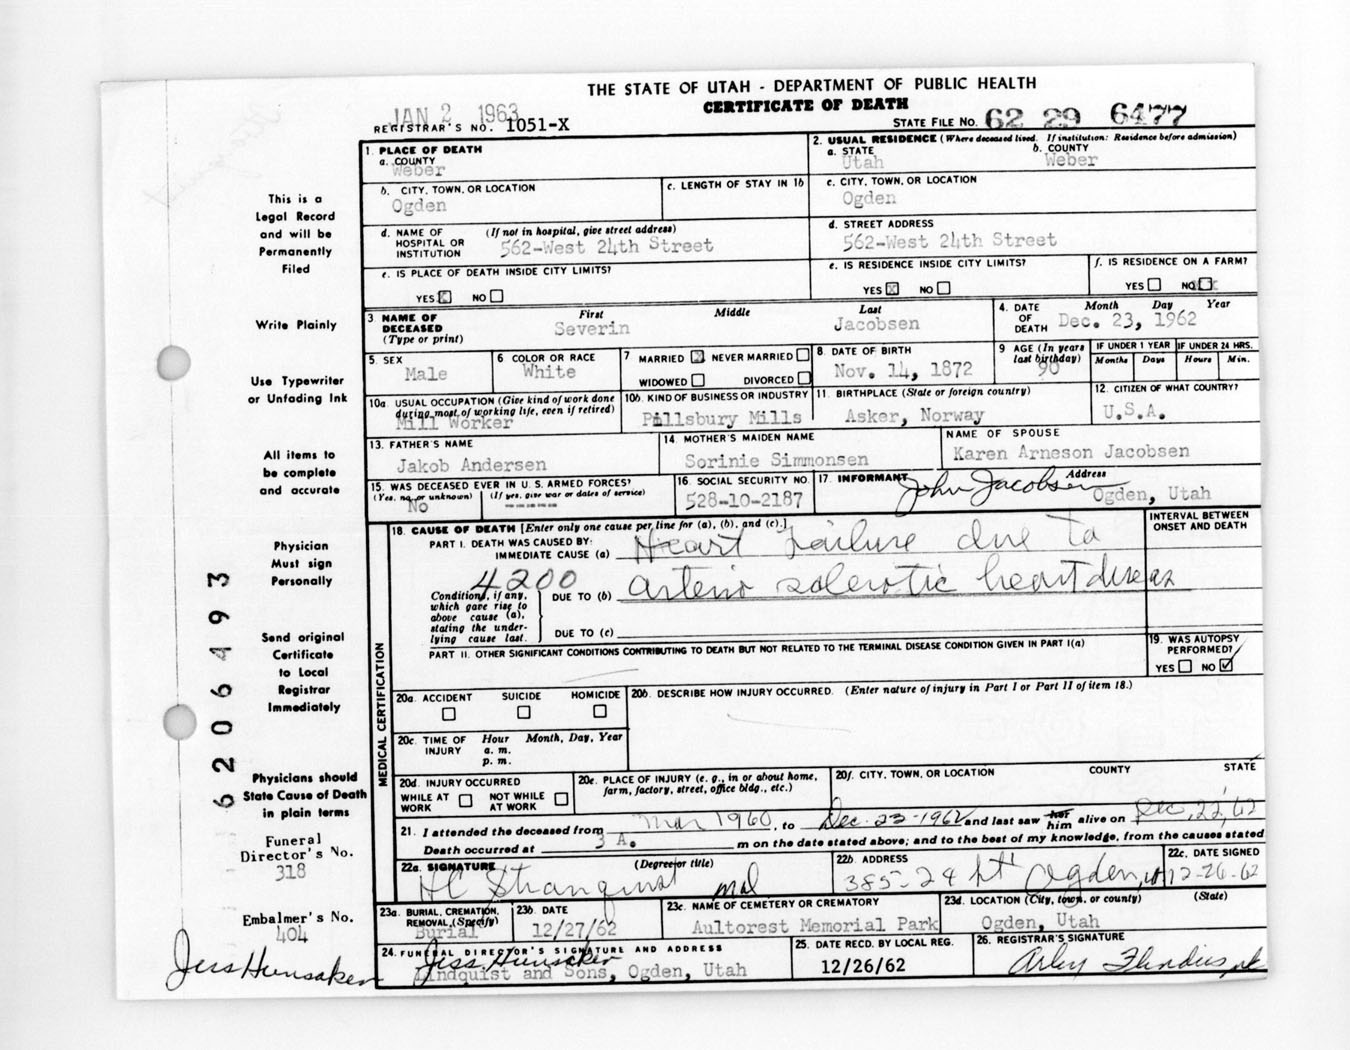 THE STATE OF UTAH - DEPARTMENT OF PUBLIC HEALTH
CERTIFICATE OF DEATH
JAN 2 1963
REGISTRAR'S NO. 1051-X
STATE FILE NO. 62 29 6477
1. PLACE OF DEATH
a. COUNTY
Weber
2. USUAL RESIDENCE (Where deceased lived. If institution: Residence before admission)
a. STATE
Utah
b. COUNTY
Weber
b. CITY, TOWN, OR LOCATION
Ogden
c. LENGTH OF STAY IN 1b
c. CITY, TOWN, OR LOCATION
Ogden
d. NAME OF HOSPITAL OR INSTITUTION
(If not in hospital, give street address)
562-West 24th Street
d. STREET ADDRESS
562-West 24th Street
e. IS PLACE OF DEATH INSIDE CITY LIMITS?
YES X NO
e. IS RESIDENCE INSIDE CITY LIMITS?
YES X NO
f. IS RESIDENCE ON A FARM?
YES NO X
3. NAME OF DECEASED (Type or print)
First Middle Last
Severin Jacobsen
4. DATE OF DEATH
Month Day Year
Dec. 23, 1962
5. SEX
Male
6 COLOR OR RACE
White
7 MARRIED X NEVER MARRIED
WIDOWED DIVORCED
8. DATE OF BIRTH
Nov. 14, 1872
9 AGE (In years last birthday)
90
IF UNDER 1 YEAR
Months Days
IF UNDER 24 HRS.
Hours Min.
10a. USUAL OCCUPATION (Give kind of work done during most of working life, even if retired)
Mill Worker
10b. KIND OF BUSINESS OR INDUSTRY
Pillsbury Mills
11. BIRTHPLACE (State or foreign country)
Asker, Norway
12. CITIZEN OF WHAT COUNTRY?
U.S.A.
13. FATHER'S NAME
Jakob Andersen
14. MOTHER'S MAIDEN NAME
Sorinie Simmonsen
NAME OF SPOUSE
Karen Arneson Jacobsen
15. WAS DECEASED EVER IN U.S. ARMED FORCES?
(Yes, no, or unknown) (If yes, give war or dates of service)
No -----
16. SOCIAL SECURITY NO.
528-10-2187
17. INFORMANT Address
John Jacobsen Ogden, Utah
18. CAUSE OF DEATH [Enter only one cause per line for (a), (b), and (c).]
INTERVAL BETWEEN ONSET AND DEATH
PART I. DEATH WAS CAUSED BY:
IMMEDIATE CAUSE (a) Heart failure due to
4200
Conditions, if any, which gave rise to above cause (a), stating the underlying cause last.
DUE TO (b) arterio sclerotic heart disease
DUE TO (c)
PART II. OTHER SIGNIFICANT CONDITIONS CONTRIBUTING TO DEATH BUT NOT RELATED TO THE TERMINAL DISEASE CONDITION GIVEN IN PART I(a)
19. WAS AUTOPSY PERFORMED?
YES NO ✓
MEDICAL CERTIFICATION
20a. ACCIDENT SUICIDE HOMICIDE
20b. DESCRIBE HOW INJURY OCCURRED. (Enter nature of injury in Part I or Part II of item 18.)
20c. TIME OF INJURY
Hour Month, Day, Year
a. m.
p. m.
20d. INJURY OCCURRED
WHILE AT WORK NOT WHILE AT WORK
20e. PLACE OF INJURY (e. g., in or about home, farm, factory, street, office bldg., etc.)
20f. CITY, TOWN, OR LOCATION COUNTY STATE
21. I attended the deceased from Mar 1960, to Dec. 23-1962 and last saw her him alive on Dec, 22, 62
Death occurred at 3 A. m on the date stated above; and to the best of my knowledge, from the causes stated
22a. SIGNATURE (Degree or title)
HC Stranquist MD
22b. ADDRESS
385-24 St Ogden, Ut
22c. DATE SIGNED
12-26-62
23a. BURIAL, CREMATION, REMOVAL, (Specify)
Burial
23b. DATE
12/27/62
23c. NAME OF CEMETERY OR CREMATORY
Aultorest Memorial Park
23d. LOCATION (City, town, or county) (State)
Ogden, Utah
24. FUNERAL DIRECTOR'S SIGNATURE AND ADDRESS
Jess Hunsaker
Lindquist and Sons, Ogden, Utah
25. DATE RECD. BY LOCAL REG.
12/26/62
26. REGISTRAR'S SIGNATURE
This is a
Legal Record
and will be
Permanently
Filed
Write Plainly
Use Typewriter
or Unfading Ink
All items to
be complete
and accurate
Physician
Must sign
Personally
Send original
Certificate
to Local
Registrar
Immediately
Physicians should
State Cause of Death
in plain terms
Funeral
Director's No.
318
Embalmer's No.
404
Jess Hunsaker
6206493